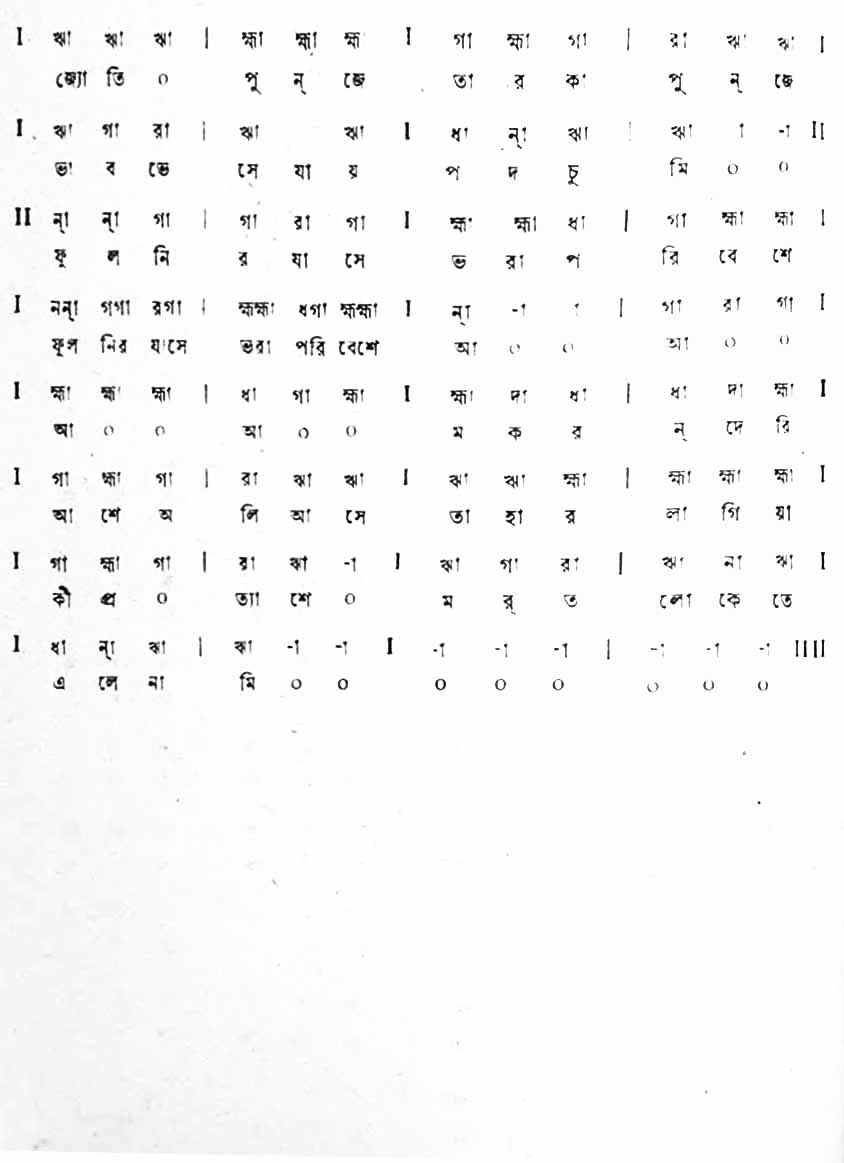 I ঋা ঋা ঋা | হ্মা হ্মা হ্ম I গা হ্মা গা | রা ঋা ঋা I
জ্যো তি ০ পু ন্ জে তা র কা পু ন্ জে
I ঋা গা রা | ঋা ঋা I ধা ন্া ঋা | ঋা া -া II
ভা ব ভে সে যা য় প দ চু মি ০ ০
II ন্া ন্া গা | গা রা গা I হ্মা হ্মা ধা | গা হ্মা হ্মা I
ফু ল নি র যা সে ভ রা প রি বে শে
I নন্া গগা রগা | হ্মহ্মা ধগা হ্মহ্মা I ন্া -া া | গা রা গা I
ফুল নির যাসে ভরা পরি বেশে আ ০ ০ আ ০ ০
I হ্মা হ্মা হ্মা | ধা গা হ্মা I হ্মা দা ধা | ধা দা হ্মা I
আ ০ ০ আ ০ ০ ম ক র ন্ দে রি
I গা হ্মা গা | রা ঋা ঋা I ঋা ঋা হ্মা | হ্মা হ্মা হ্মা I
আ শে অ লি আ সে তা হা র লা গি য়া
I গা হ্মা গা | রা ঋা -া I ঋা গা রা | ঋা না ঋা I
কী প্র ০ ত্যা শে ০ ম র্ ত লো কে তে
I ধা ন্া ঋা | ঋা -া -া I -া -া -া | -া -া -া IIII
এ লে না মি ০ ০ ০ ০ ০ ০ ০ ০